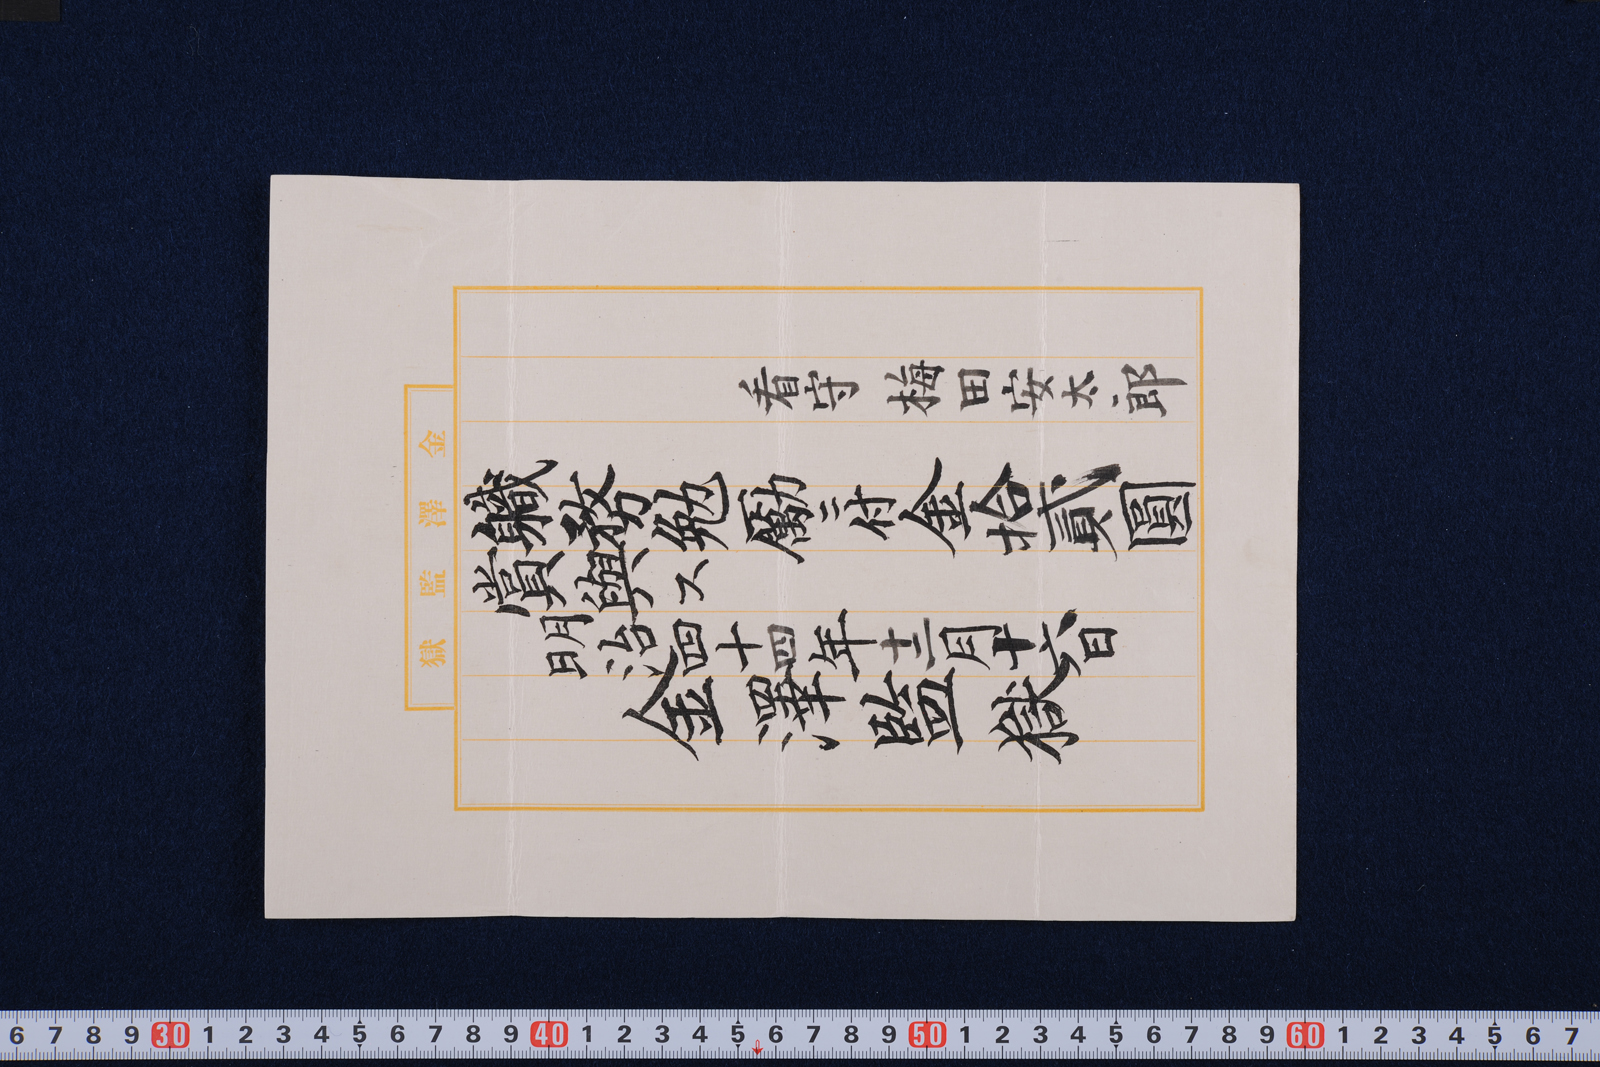 看守 梅田安太郎
職務勉勵ニ付金拾貳圓
賞與ス
明治四十四年十二月十六日
金澤監獄
金澤監獄
6 7 8 9 30 1 2 3 4 5 6 7 8 9 40 1 2 3 4 5 6 7 8 9 50 1 2 3 4 5 6 7 8 9 60 1 2 3 4 5 6 7